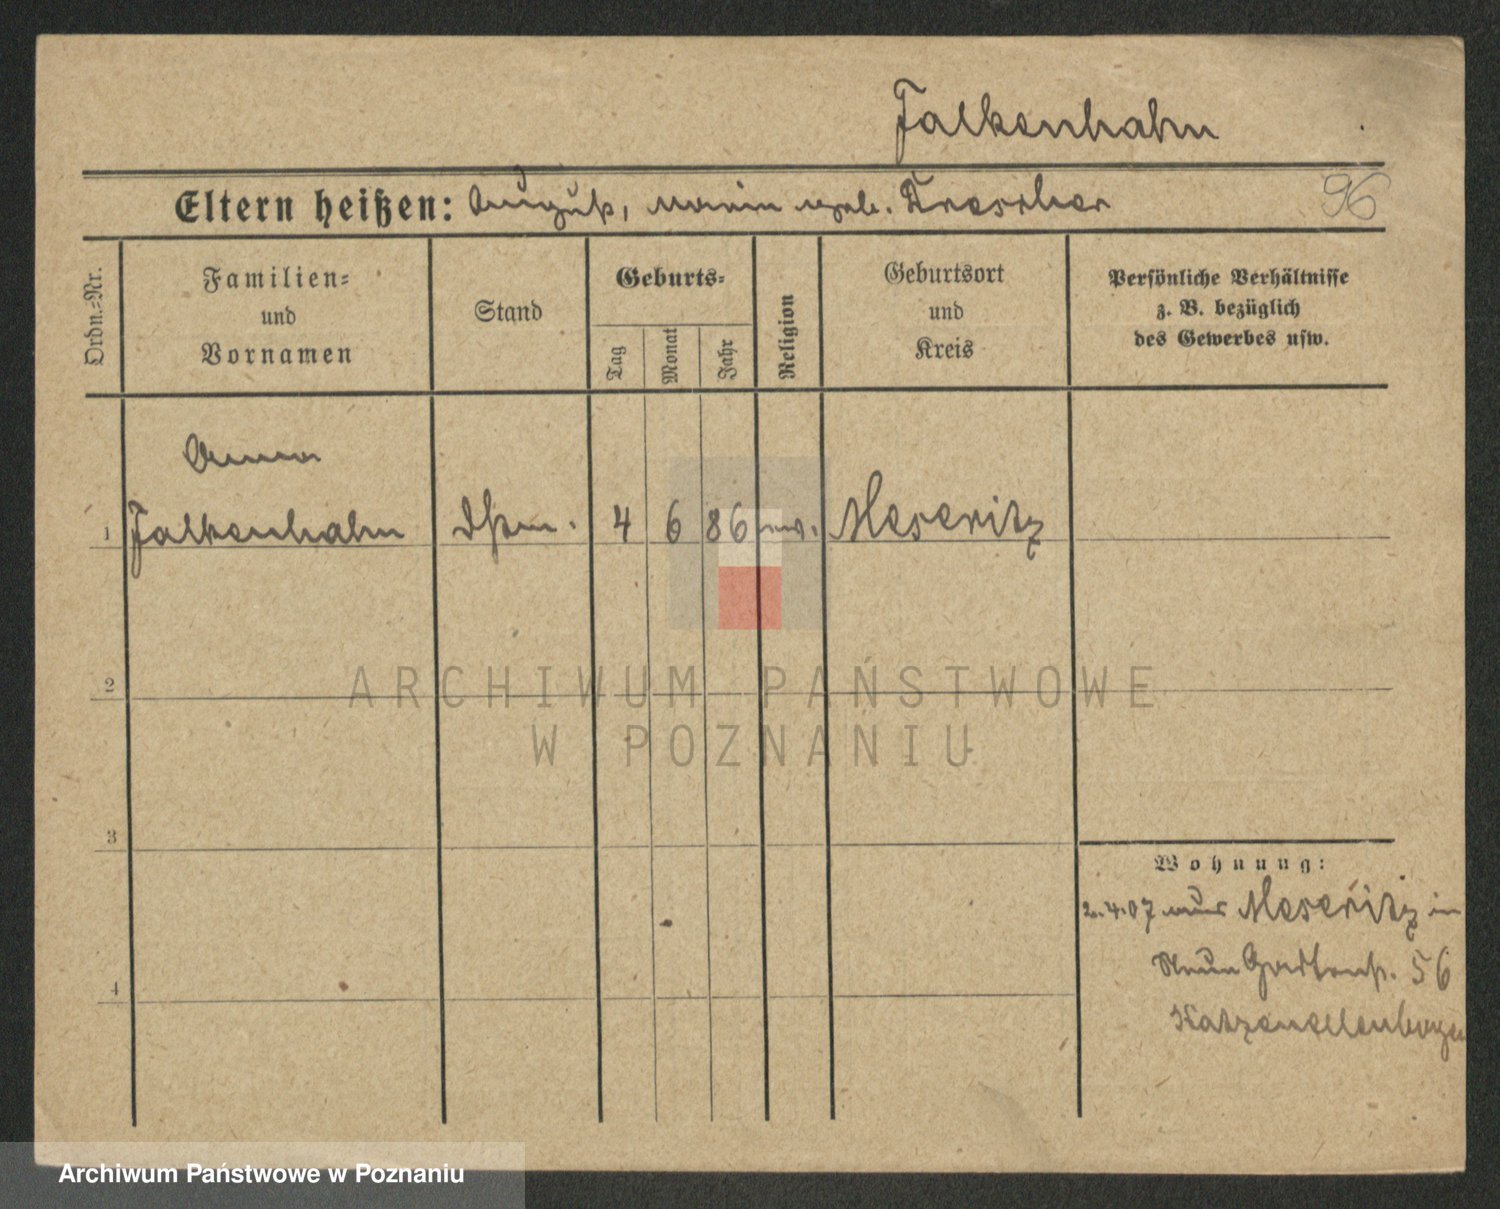 Falkenhahn
96
Eltern heißen: August, Maria geb. Drescher
Ordn.=Nr.
Familien=
und
Vornamen
Stand
Geburts=
Tag
Monat
Jahr
Religion
Geburtsort
und
Kreis
Persönliche Verhältnisse
z. B. bezüglich
des Gewerbes usw.
Anna
1 Falkenhahn 4 6 86 ev. Meseritz
2
3
4
Wohnung:
2.4.07 aus Meseritz in
Neue Gartenstr. 56
Katzenellenbogen
ARCHIWUM PAŃSTWOWE
W POZNANIU
Archiwum Państwowe w Poznaniu